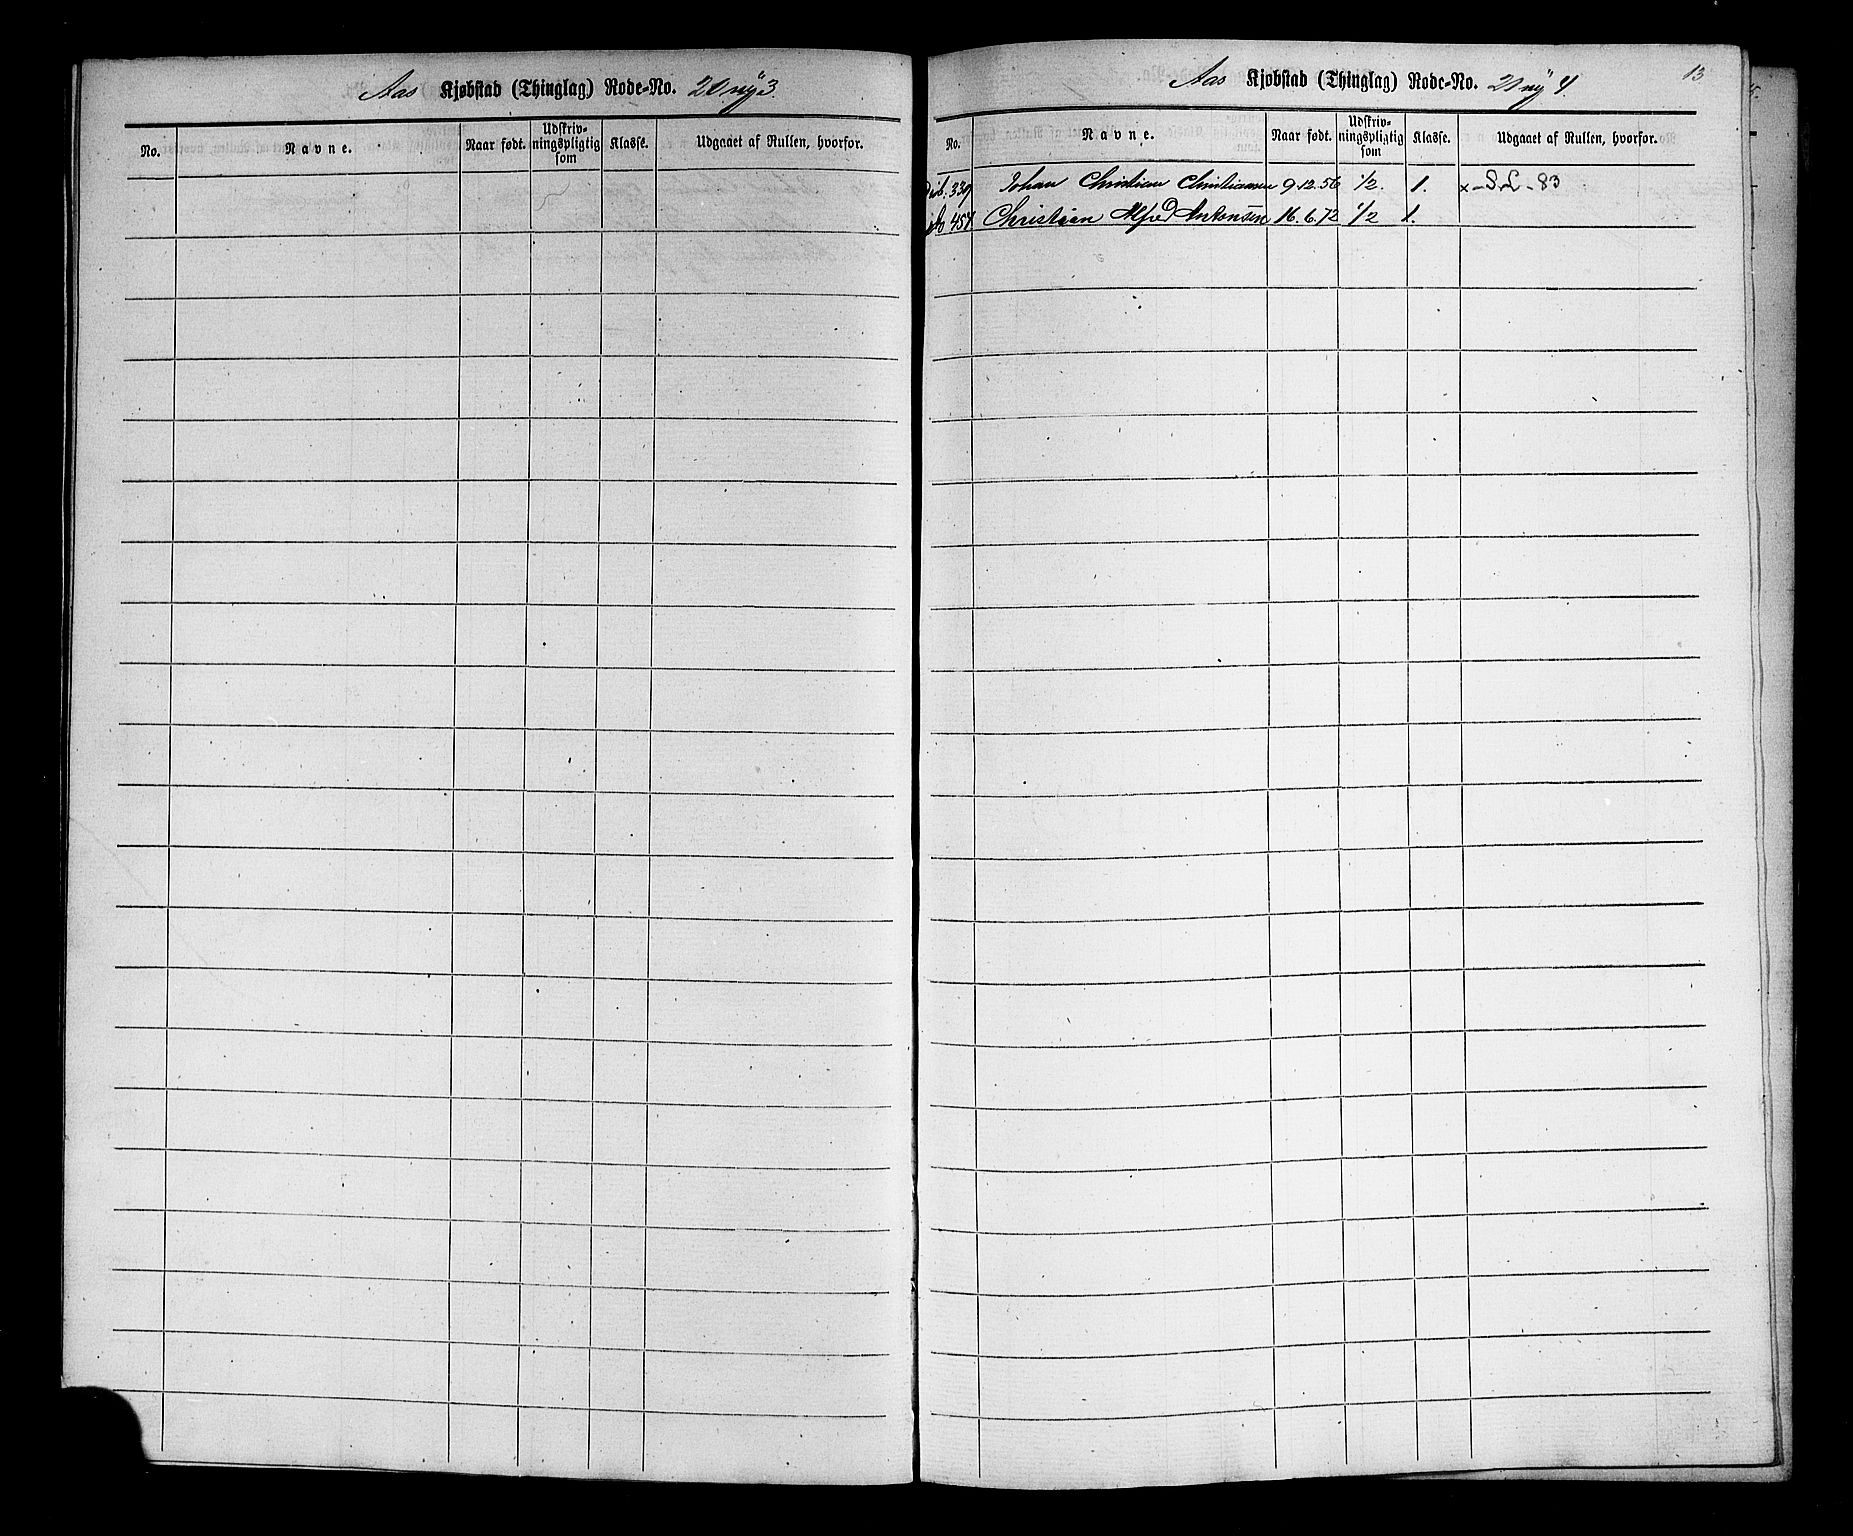 Aas Kjøbstad (Thinglag) Rode-No. 20 ny 3
No. Navne. Naar født. Udskriv-ningspligtig som Klasse. Udgaaet af Rullen, hvorfor.
Aas Kjøbstad (Thinglag) Rode-No. 21 ny 4. 13
No. Navne. Naar født. Udskriv-ningspligtig som Klasse. Udgaaet af Rullen, hvorfor.
339 Johan Christian Christiansen 9.12.56 1/2. 1. x - S. L - 83
457 Christian Alfred Antonsen 16.6.72 1/2 1.